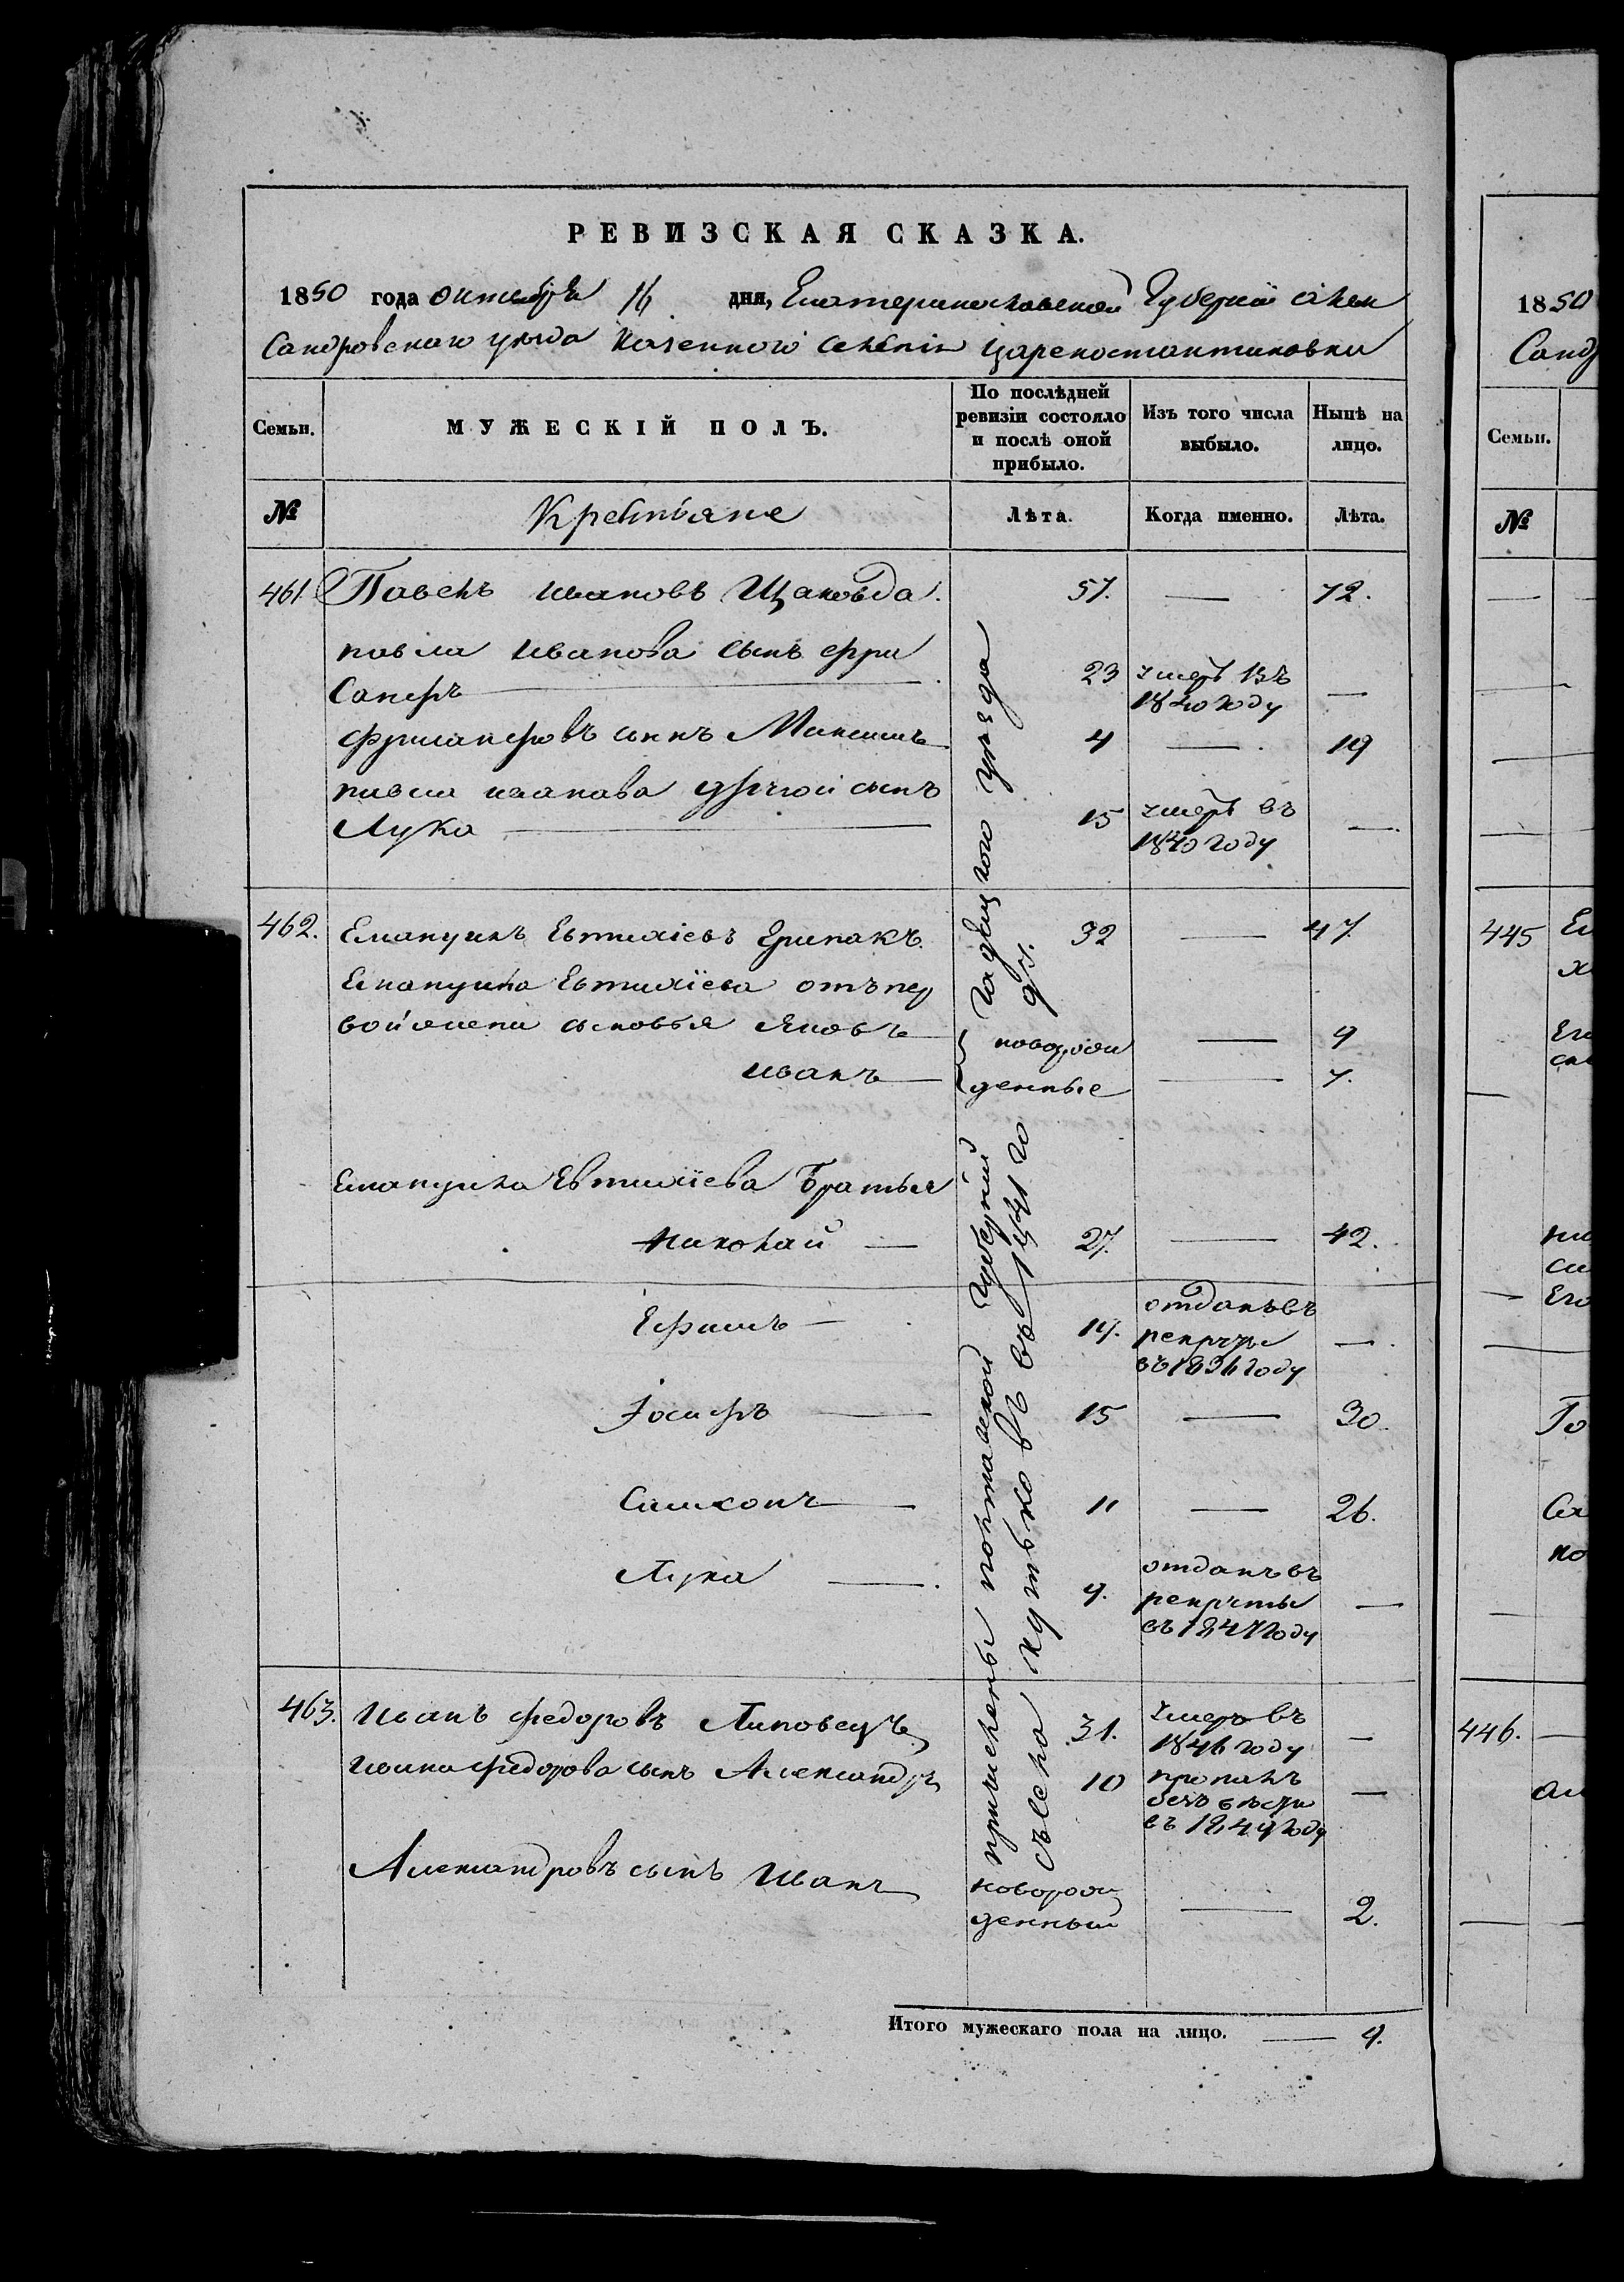 РЕВИЗСКАЯ СКАЗКА.
1850 года октября 16 дня, Екатеринославской Губернии Алек
сандровскаго уезда казенного селения Цареконстантиновки
Семьи. МУЖЕСКІЙ ПОЛЪ. По послѣдней ревизіи состояло и послѣ оной прибыло. Изъ того числа выбыло. Нынѣ на лицо.
№ Крестьяне Лѣта. Когда именно. Лѣта.
461 Павелъ Ивановъ 57. — 72.
павла Иванова сынъ
23 умеръ въ
1840 году —
сынъ Максимъ 4 — 19
павла иванова другой сынъ
Лука — 15 умеръ въ
1840 году —
462. Емануилъ Евтихіевъ 32 — 47
Емануила Евтихіева отъ пер
вой жены сыновья Яковъ — новорож — 9
Иванъ — денные — 7.
Емануила Евтихіева Братья
Николай — 27. — 42.
Ефимъ — 19. отданъ въ
рекруты
въ 1836 году —
Іосифъ — 15 — 30.
11 — 26.
Лука — 9. отданъ въ
рекруты
въ 1847 году —
463. Иванъ Федоровъ Липовецъ 31. умеръ въ
1846 году —
Ивана Федорова сынъ Александръ 10 пропалъ
безъ вести
въ 1849 году —
Александровъ сынъ Иванъ новорож
денный — 2.
причислены полтавской губернии гадяцкого уезда
села въ 1841 го
ду.
Итого мужескаго пола на лицо. — 9.
1850
Санд
Семьи.
№
445
446.